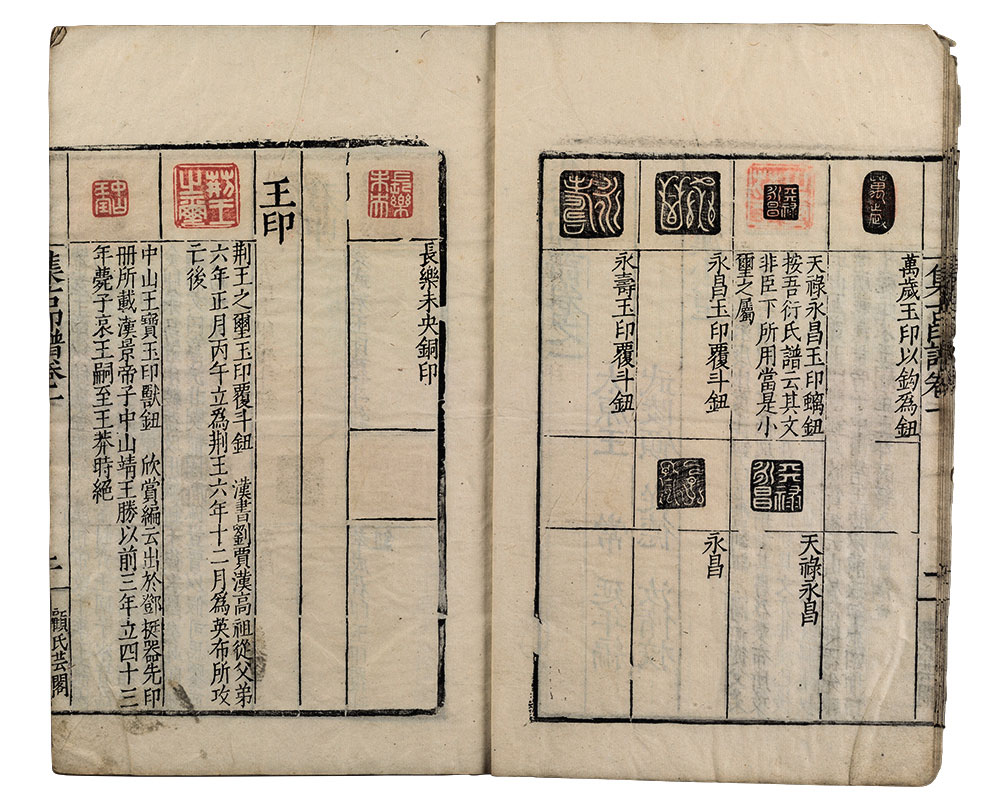 集古印譜卷一
萬歲
萬歲玉印以鈎爲鈕
天祿永昌
天祿永昌玉印螭鈕
按吾衍氏譜云其文
非臣下所用當是小
璽之屬
天祿永昌
天祿永昌
永昌玉印覆斗鈕
永昌
永壽
永壽玉印覆斗鈕
長樂未央
長樂未央銅印
王印
荊王之璽
荊王之璽玉印覆斗鈕 漢書劉賈漢高祖從父弟
六年正月丙午立爲荊王六年十二月爲英布所攻
亡後
中山王寶
中山王寶玉印獸鈕 欣賞編云出於鄧挺器先印
册所載漢景帝子中山靖王勝以前三年立四十三
年薨子哀王嗣至王莽時絕
集古印譜卷一
顧氏芸閣